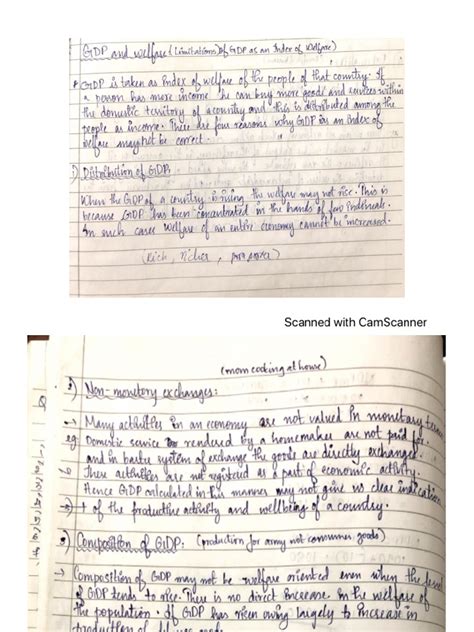 GDP and welfare (Limitations) of GDP as an Index of Welfare)
* GDP is taken as Index of welfare of the people of that country. If
a person has more income he can buy more goods and services within
the domestic territory of a country and this is distributed among the
people as income. There are four reasons why GDP as an index of
welfare may not be correct.
1) Distribution of GDP:
When the GDP of a country is rising the welfare may not rise. This is
because GDP has been concentrated in the hands of few
In such cases welfare of an entire economy cannot be increased.
(Rich, richer, poor poorer)
Scanned with CamScanner
(mom cooking at house)
Non-monitory exchanges:
→ Many activities in an economy are not valued in monetary terms
eg Domestic service rendered by a homemaker are not paid for.
and in barter system of exchange the goods are directly exchanged.
these activities are not registered as a part of economic activity.
Hence GDP calculated in this manner may not give us clear indication
→ of the productive activity and wellbeing of a country.
Composition of GDP: (production for army not consumer goods)
→ Composition of GDP may not be welfare oriented even when the level
of GDP tends to rise. There is no direct increase in the welfare of
the population. If GDP has risen owing largely to increase in
production of goods